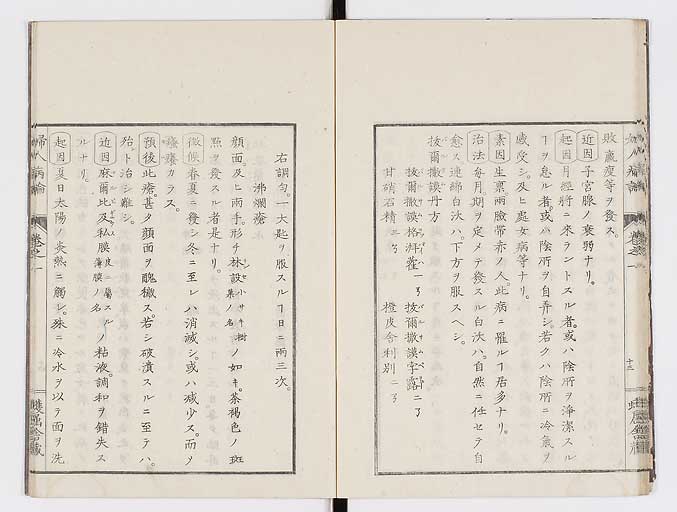 敗羸瘦等ヲ發ス。
近因 子宮腺ノ衰弱ナリ。
起因 月經將ニ來ラントスル者。或ハ陰所ヲ淨潔スル
ヿヲ怠ル者。或ハ陰所ヲ自弄シ。若クハ陰所ニ冷氣ヲ
感受シ。及ヒ處女病等ナリ。
素因 生稟。兩臉帶赤ノ人。此病ニ罹ルヿ居多ナリ。
治法 每月。期ヲ定メテ發スル白沃ハ。自然ニ任セテ自
愈ス連綿白沃ハ。下方ヲ服スヘシ。
抜爾撒謨丹方
抜爾撒謨格湃 一ヲ 抜爾撒謨孛露 二ヲ
甘硝石精 二ヲ 橙皮舎利別 二ヲ
十三
婦人病論
卷之一
右調匀。一大匙ヲ服スルヿ日ニ兩三次。
沸爛瘡
顏面及ヒ兩手。形チ林設 小サキ樹果ノ名 ノ如キ。茶褐色ノ斑
點ヲ發スル者是ナリ。
徵候 春夏ニ發シ冬ニ至レハ消滅シ。或ハ減少ス。而ヲ
瘙癢カラス。
預後 此瘡。甚タ顏面ヲ醜穢ス。若シ破潰スルニ至テハ。
殆ト治シ難シ。
近因 麻爾比及私膜 皮ニ屬スル薄膜ノ名 ノ粘液。調和ヲ錯失ス
ルナリ。
起因 夏日太陽ノ炎熱ニ觸レ。殊ニ冷水ヲ以テ面ヲ洗
婦人病論
卷之一